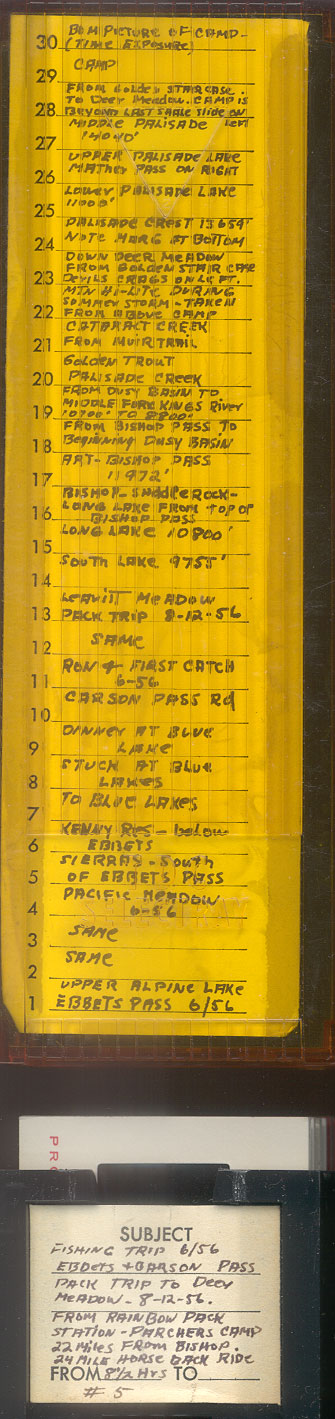 30 BUM PICTURE OF CAMP-
(TIME EXPOSURE)
29 CAMP
28 FROM GOLDEN STAIRCASE.
TO Deer Meadow. CAMP IS
BEYOND LAST SHALE SLIDE ON Left
27 MIDDLE PALISADE
14040'
26 UPPER PALISADE LAKE
MATHER PASS ON RIGHT
25 LOWER PALISADE LAKE
11000'
24 PALISADE CREST 13654'
NOTE MARG AT BOTTOM
23 DOWN DEER MEADOW
FROM GOLDEN STAIR CASE
DEVILS CRAGS ON LEFT.
22 MTN HI-LITE DURING
SUMMER STORM - TAKEN
FROM ABOVE CAMP
21 CATARACT CREEK
FROM MUIR TRAIL
20 GOLDEN TROUT
PALISADE CREEK
19 FROM DUSY BASIN TO
MIDDLE FORK KINGS RIVER
10700' TO 8800'
18 FROM BISHOP PASS TO
Beginning DUSY BASIN
17 ART- BISHOP PASS
11972'
16 BISHOP - SADDLEROCK-
LONG LAKE FROM TOP OF
BISHOP PASS
15 LONG LAKE 10800'
14 SOUTH LAKE 9755'
13 LEAVITT MEADOW
PACK TRIP 8-12-56
12 SAME
11 RON + FIRST CATCH
6-56
10 CARSON PASS Rd
9 DINNER AT BLUE
LAKE
8 STUCK AT BLUE
LAKES
7 TO BLUE LAKES
6 KENNY RES - below
EBBETS
5 SIERRAS - South
OF EBBETS PASS
4 PACIFIC MEADOW
6-56
3 SAME
2 SAME
1 UPPER ALPINE LAKE
EBBETS PASS 6/56
PRO
SUBJECT
FISHING TRIP 6/56
EBBETS + CARSON PASS
PACK TRIP TO DEER
MEADOW - 8-12-56.
FROM RAINBOW PACK
STATION - PARCHERS CAMP
22 MILES FROM BISHOP.
24 MILE HORSE BACK RIDE
FROM 8 1/2 Hrs TO
# 5